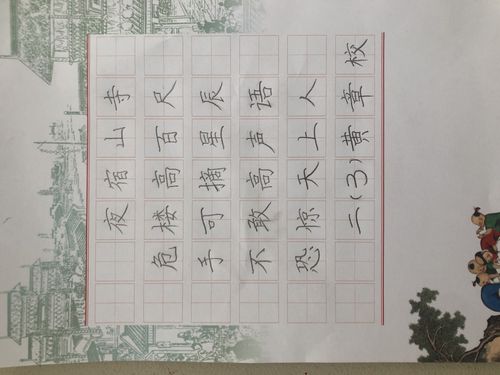 夜宿山寺
危楼高百尺
手可摘星辰
不敢高声语
恐惊天上人
二(3)黄章校